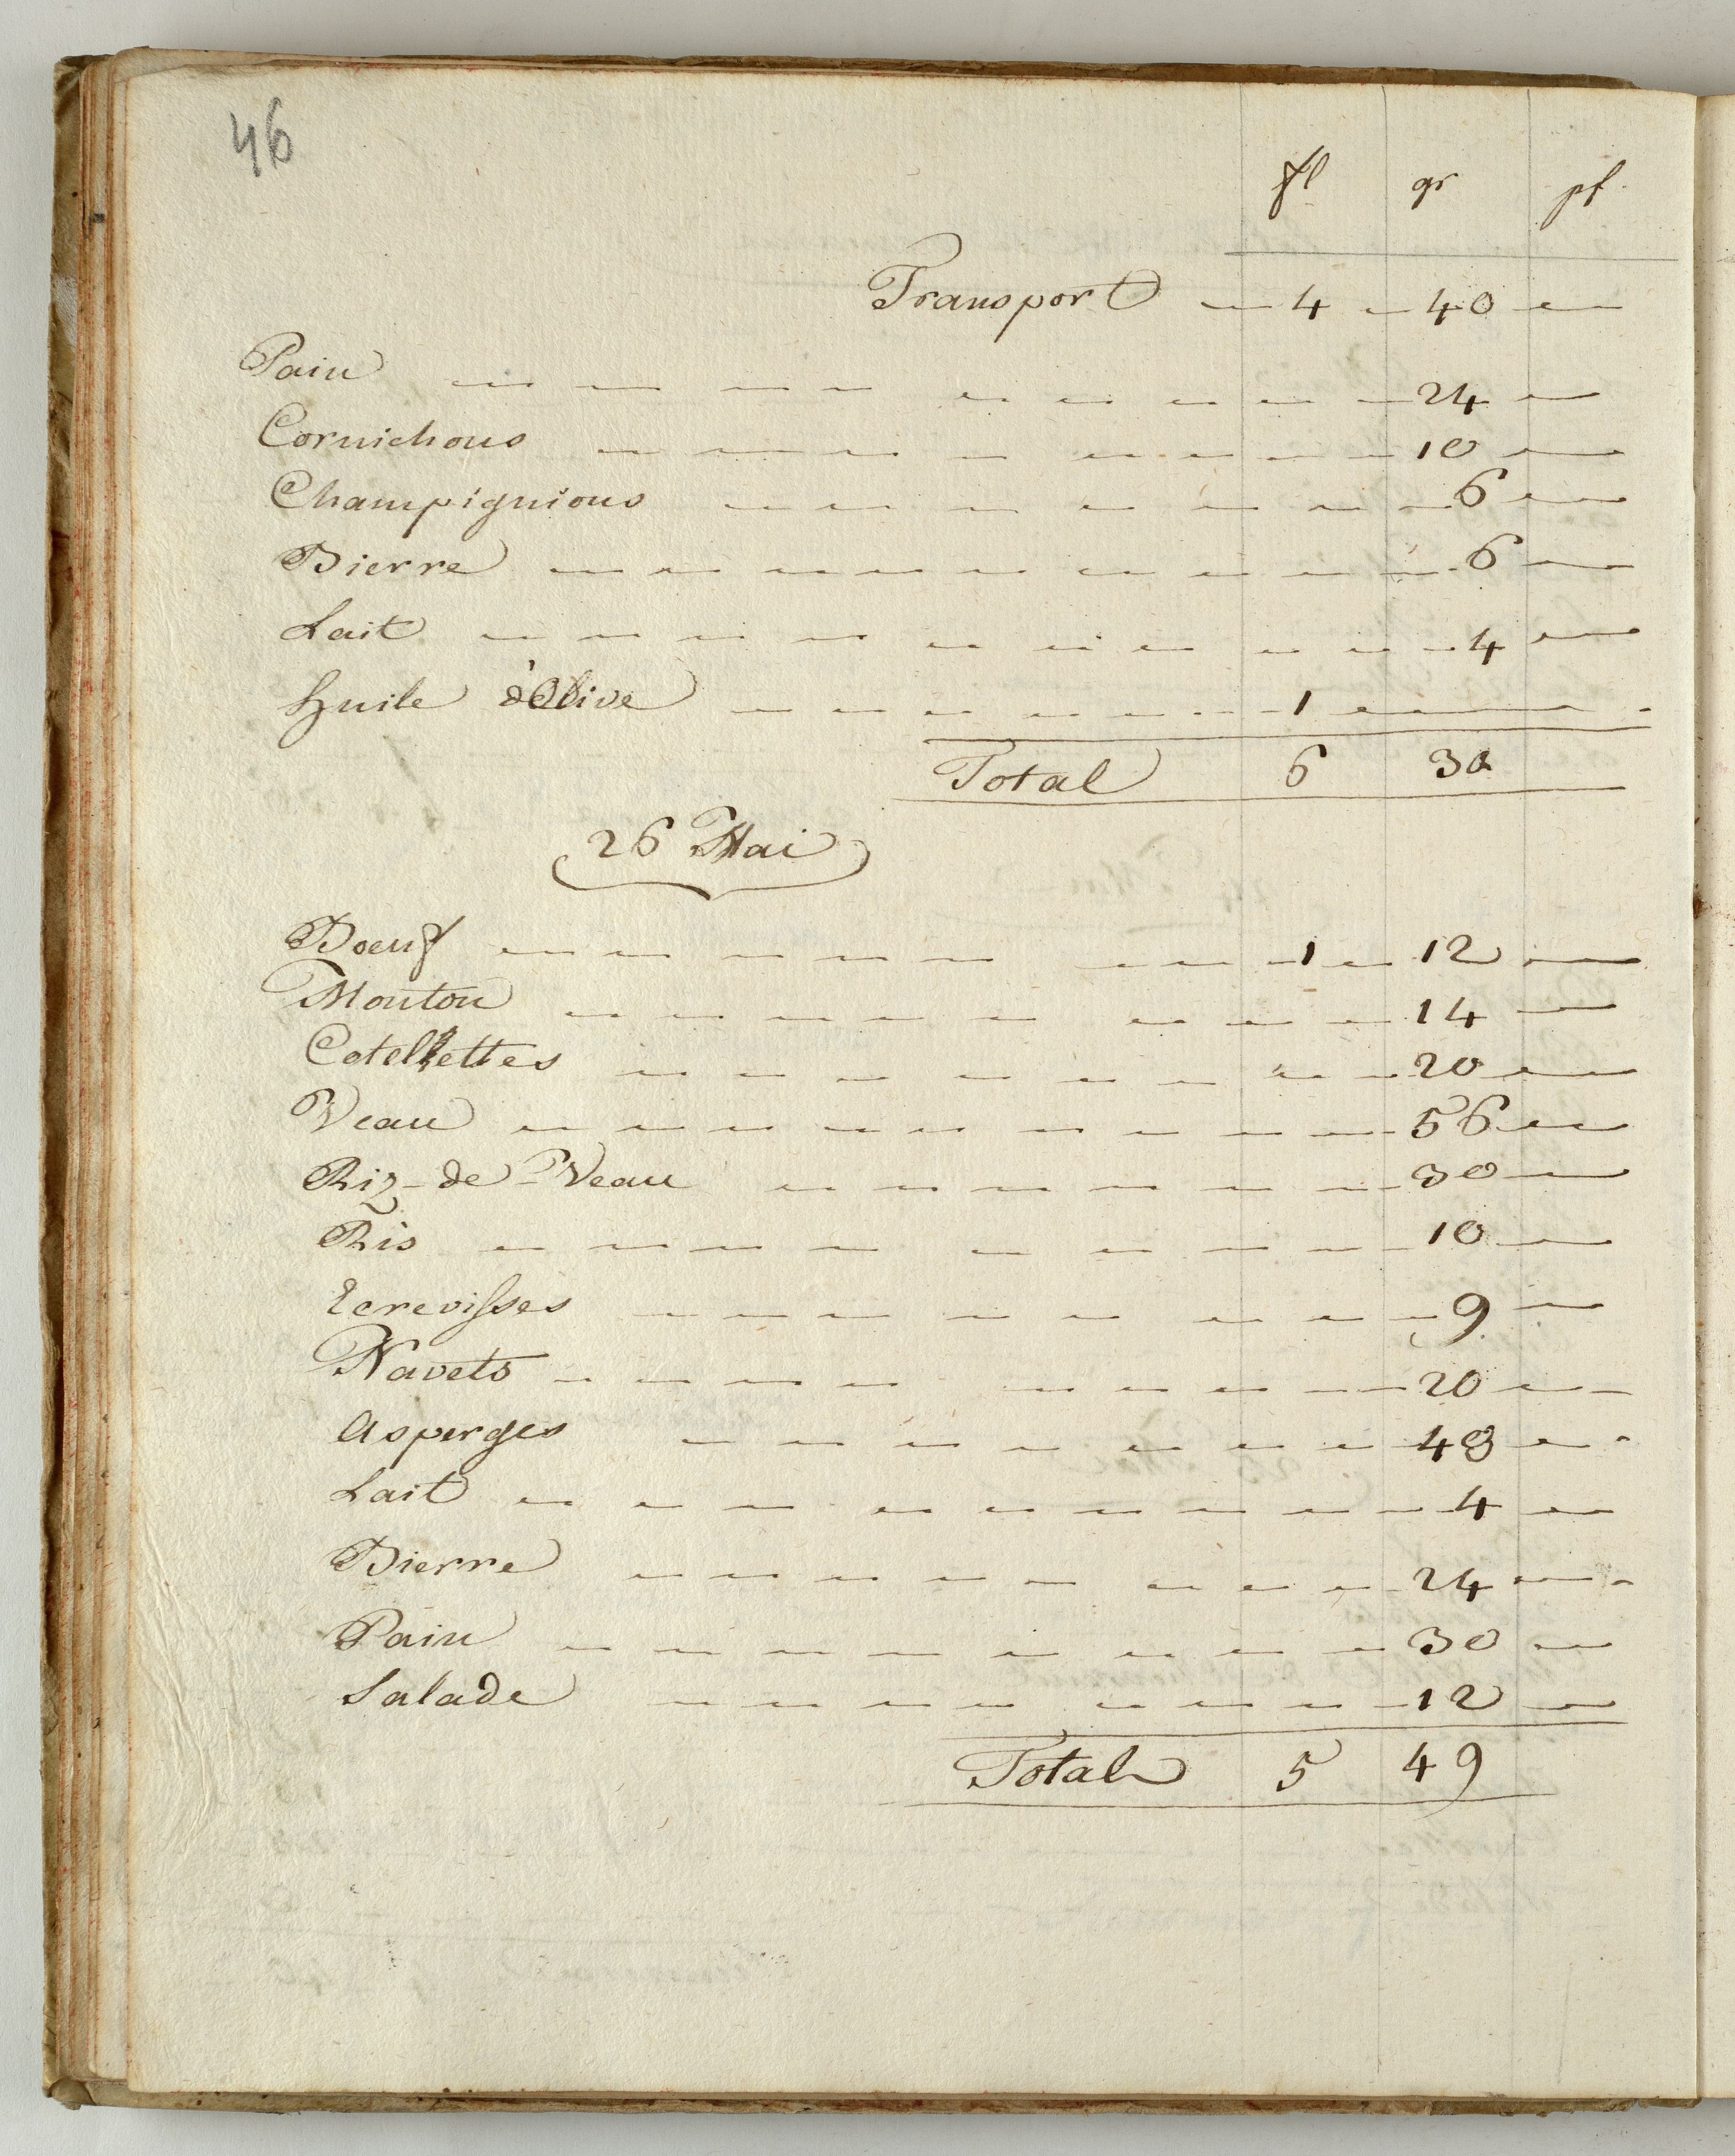 46
fl gr pf
Transport — 4 — 40 —
Pain — 24 —
Cornichons — 10 —
Champignions — 6 —
Bierre — 6 —
Lait — 4 —
Huile d'Olive — 1 —
Total 6 30
26 Mai
Boeuf — 1 — 12 —
Mouton — 14 —
Cotellettes — 20 —
Veau — 56 —
Riz-de-Veau — 30 —
Ris — 10 —
Ecrevisses — 9 —
Navets — 20 —
Asperges — 48 —
Lait — 4 —
Bierre — 24 —
Pain — 30 —
Salade — 12 —
Total 5 49